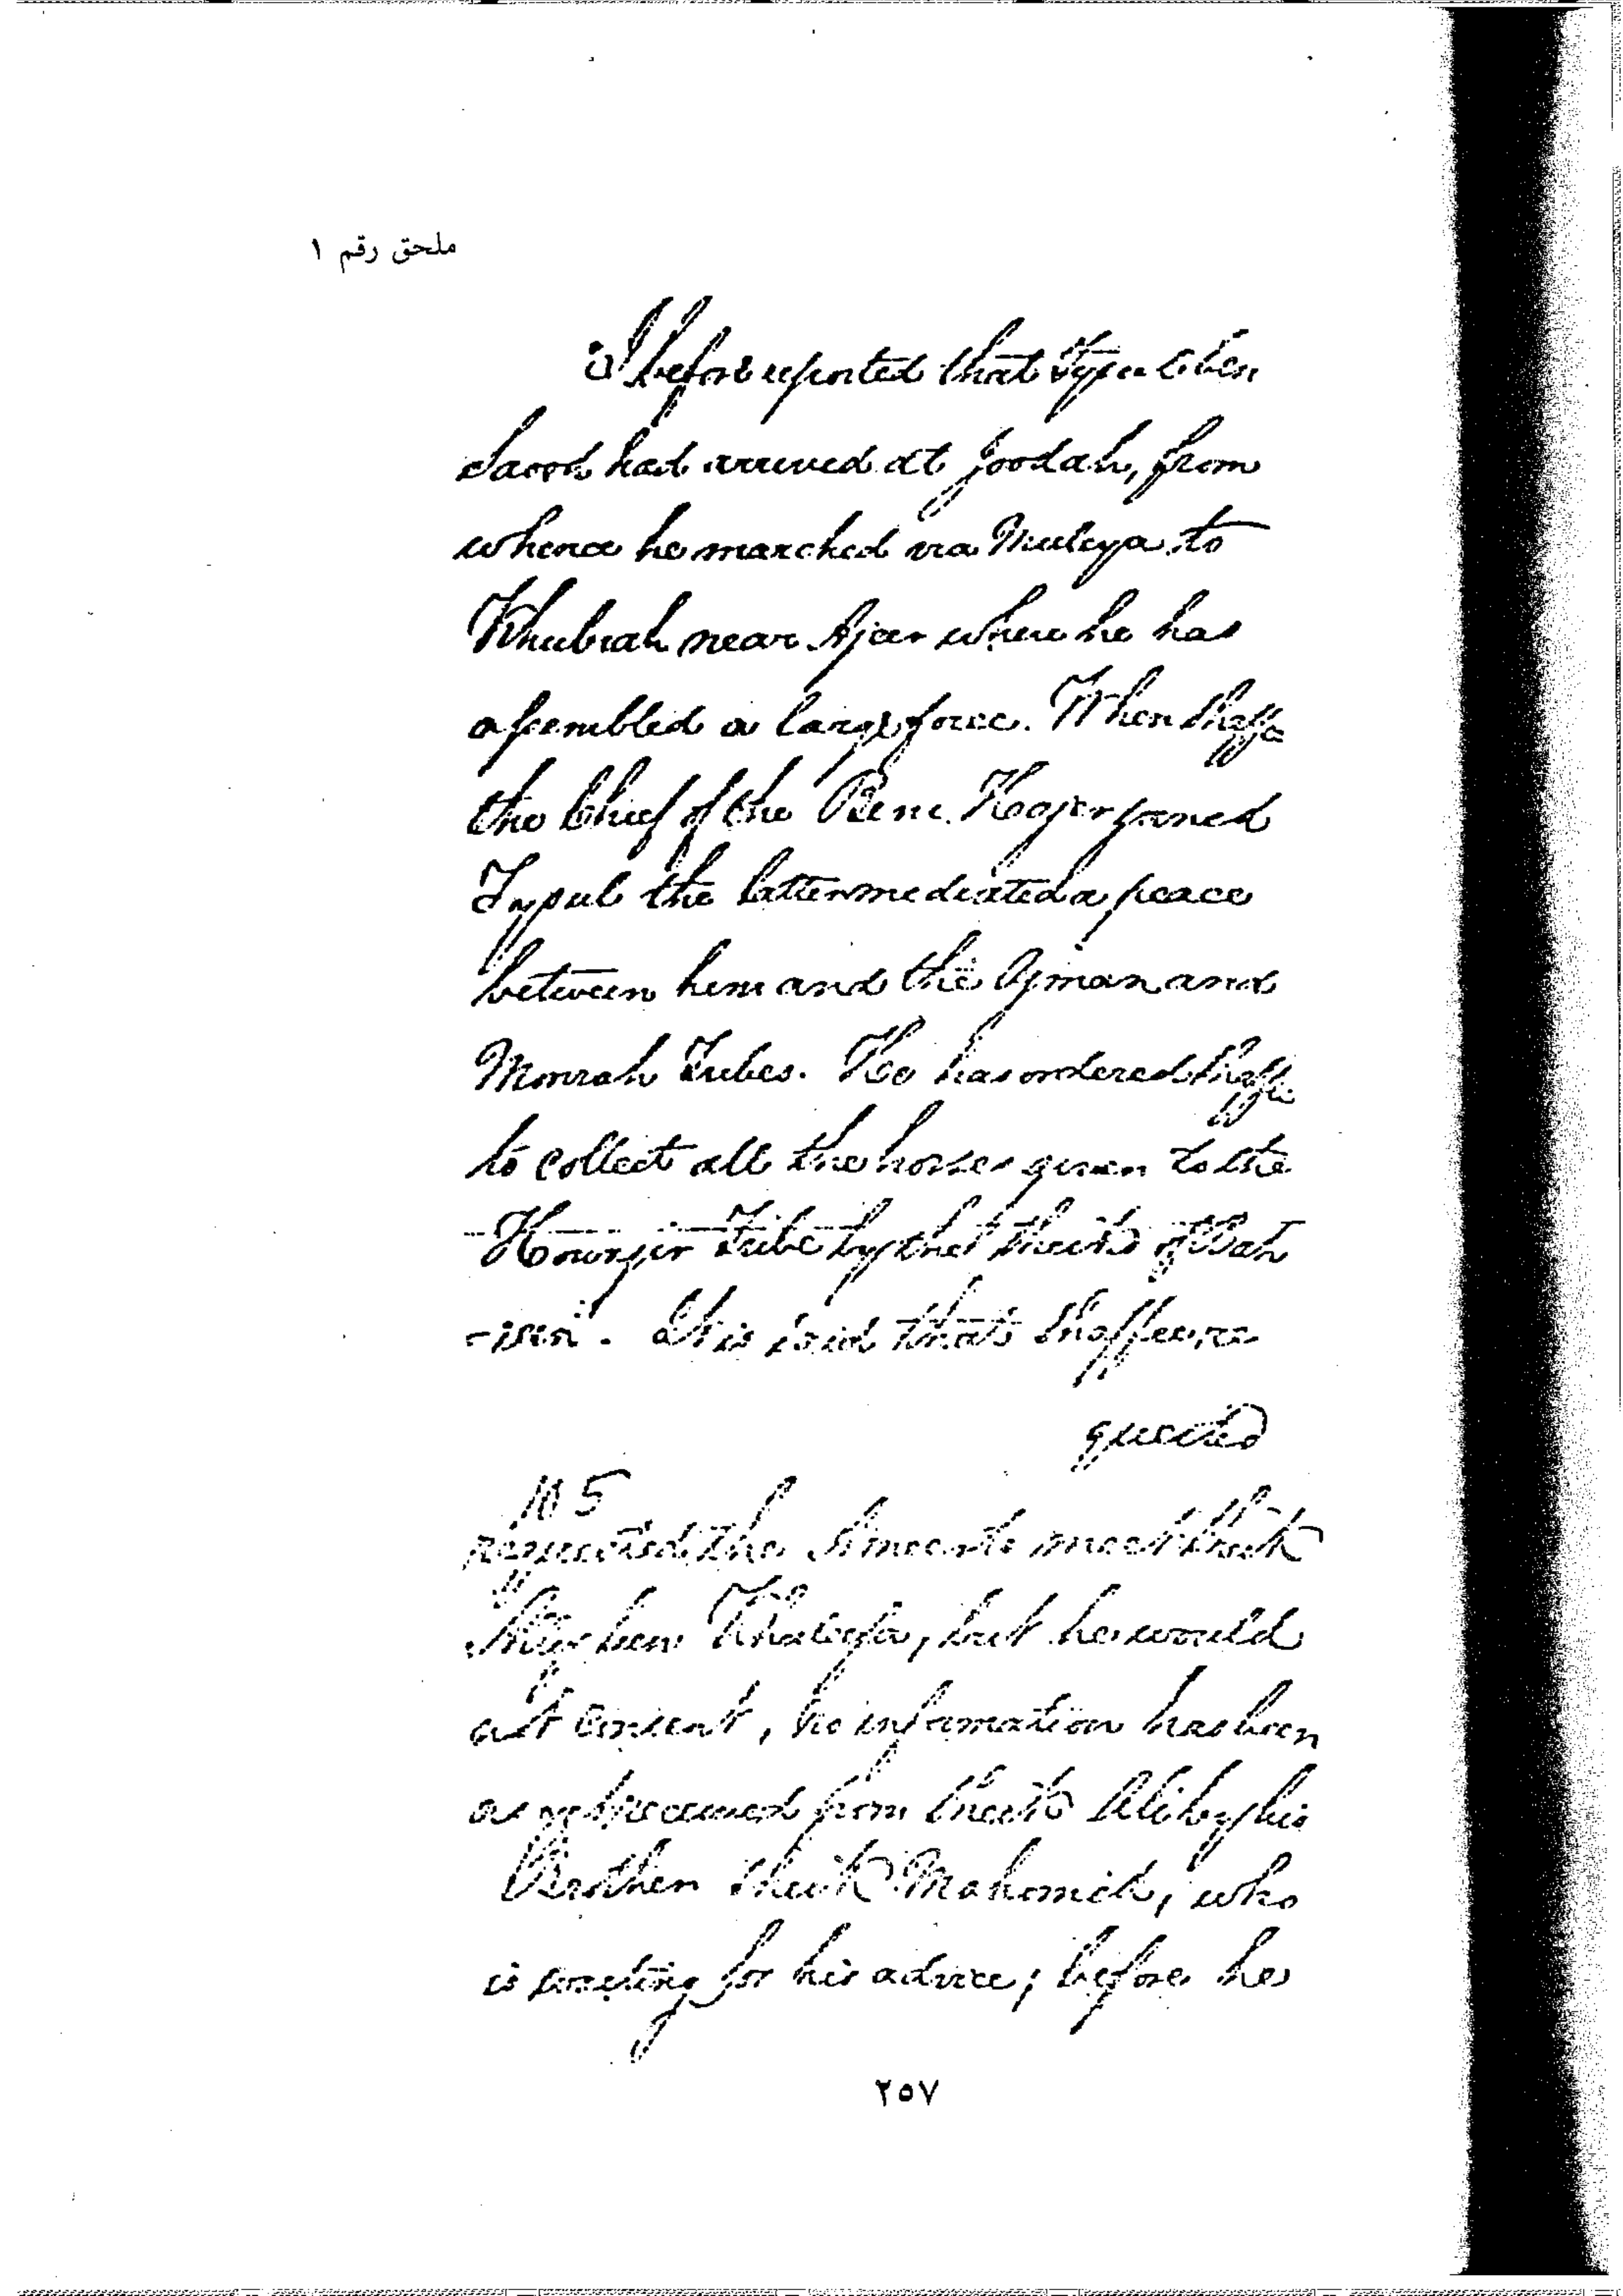 ملحق رقم ١
I before reported that Fysul ben
Saood had arrived at Joodah, from
whence he marched via Muleya to
Khubrah near Ajeer where he has
assembled a large force. When Shaffa
the Chief of the Beni Hajer joined
Fysul the latter mediated a peace
between him and the Ajman and
Monrah Tribes. He has ordered Shaffa
to collect all the horses given to the
Tribe by the Sheikh of Bah
-rein. It is said that Shaffee re
quested
105
requested the Ameer to meet Sheik
ben Khaleefa, but he would
not consent, no information has been
as yet received from Sheikh Ali by his
Brother Sheik Mahomed, who
is waiting for his advice, before he
٢٥٧